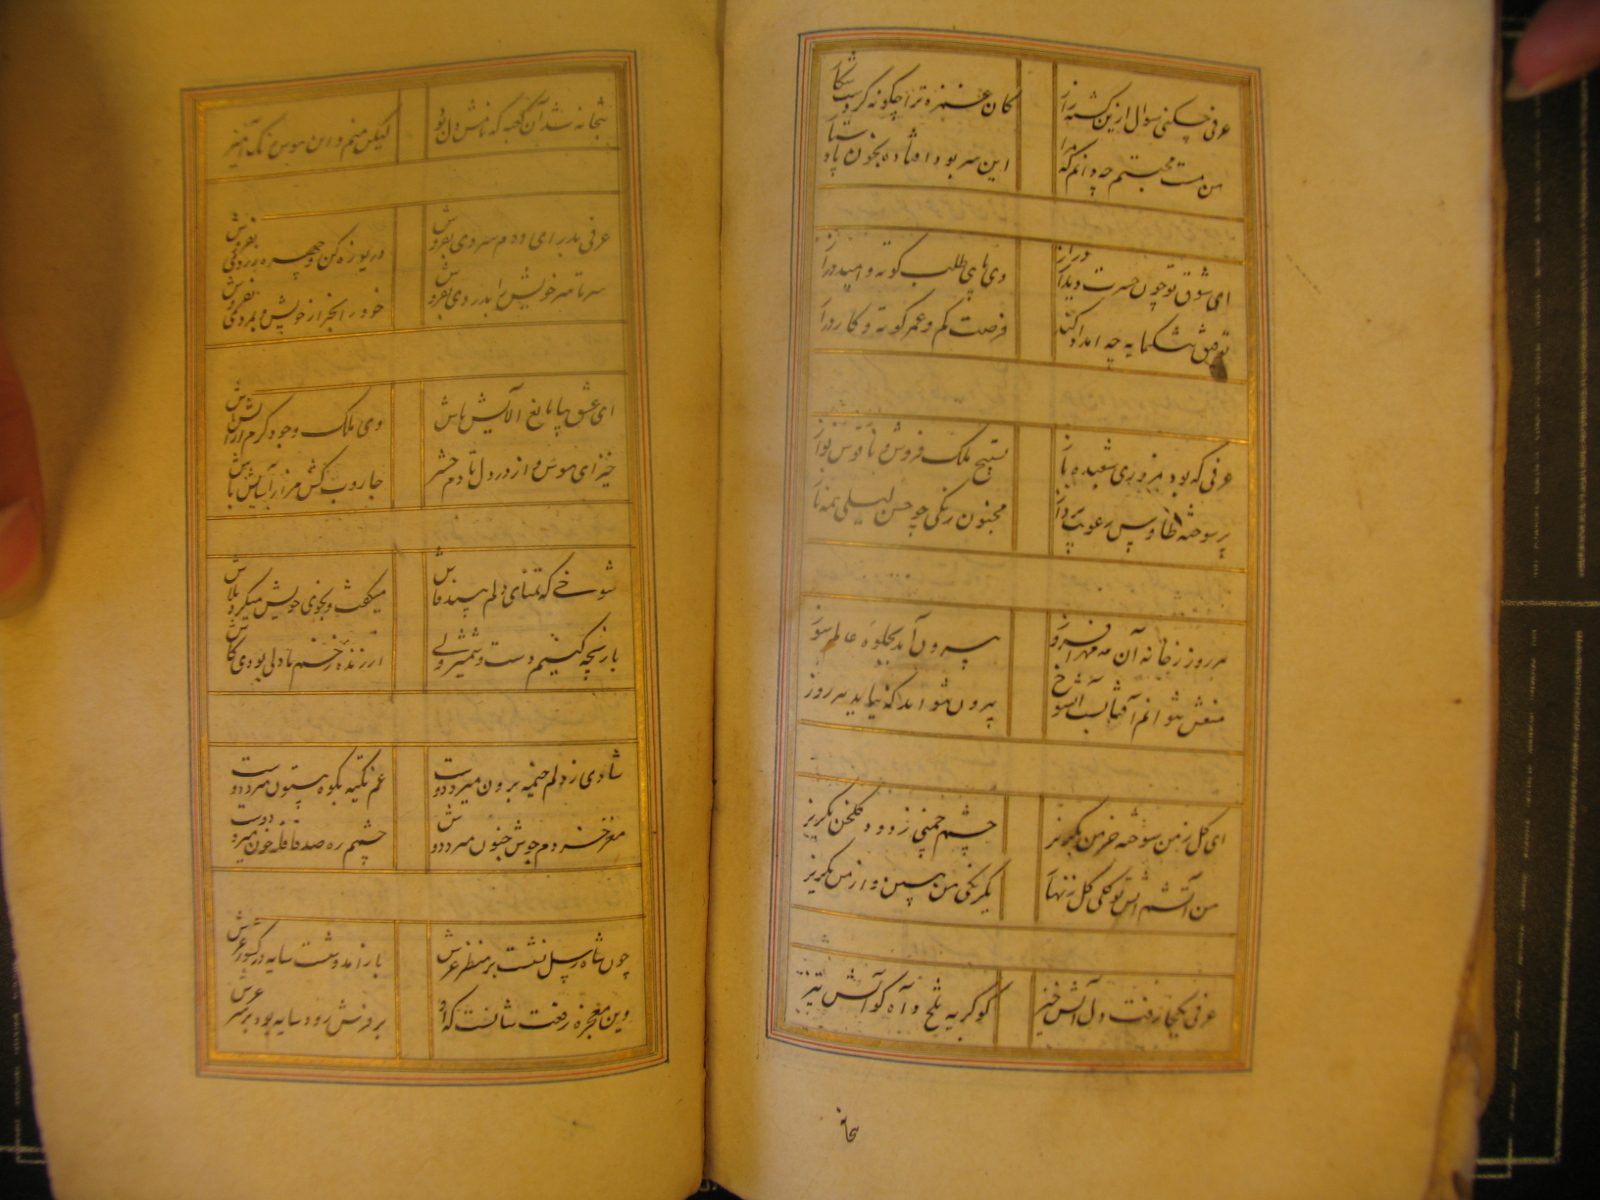 عرفی چکنی سوال ازین کشته راز
کان غمزه ترا چگونه کردست شکار
من مست محبتم چه دانم که مرا
این سر بود افتاده بخون یا دستار
ای شوق تو چون حسرت دیدار دراز
وی پای طلب کوته و امید دراز
توفیق شکیبا به چه امداد کند
فرصت کم و عمر کوته و کار دراز
عرفی که بود مزوری شعبده باز
تسبیح ملک فروش و ناقوس نواز
پر سوخته طاوس رعونت پرداز
مجنون رنگی چو حسن لیلی همه ناز
هر روز ز خانه آن مه مهر افروز
بیرون آید بجلوه عالم سوز
منعش نتوانم آفتابست آن شوخ
بیرون نتواند که نیاید هر روز
ای گل ز من سوخته خرمن بگریز
چشم چمنی ز دود گلخن بگریز
من آتشم ای تو گلی گل ز تنها
یکرنگی من ببین و از من بگریز
عرفی بکجا رفت دل آتش خیز
کو گریه تلخ و آه کو آتش تیز
بتخانه
بتخانه شد آن کعبه که نامش دل بود
لیکن منم و این هوس ننگ آمیز
عرفی بدر آی و دم سردی بفروش
دریوزه کن و چهره زردی بفروش
سر تا سر خویش را بدردی بفروش
خود را بخر از خویش و بمردی بفروش
ای عشق بیا بالغ آلایش باش
وی ملک وجود کرم آرایش باش
خیز ای هوس و از در دل تا دم حشر
جاروب کش مزار آسایش باش
شوخی که تمنای دلم بیند فاش
میگفت و بخوی خویش میکرد تلاش
بازیچه کنیم دست و شمشیر ولی
ارزنده زخم ما دلی بودی کاش
شادی ز دلم خیمه برون میزد دوست
غم تکیه بکوه بیستون میزد دوست
مغز خردم جوش جنون میزد دوش
چشمم ره صد قافله خون میزد دوست
چون شاه رسل نشست بر منظر عرش
باز آمد و نشست سایه در کشور عرش
وین معجزه رفعت شانست که او
بر فرش رود سایه بود بر سر عرش